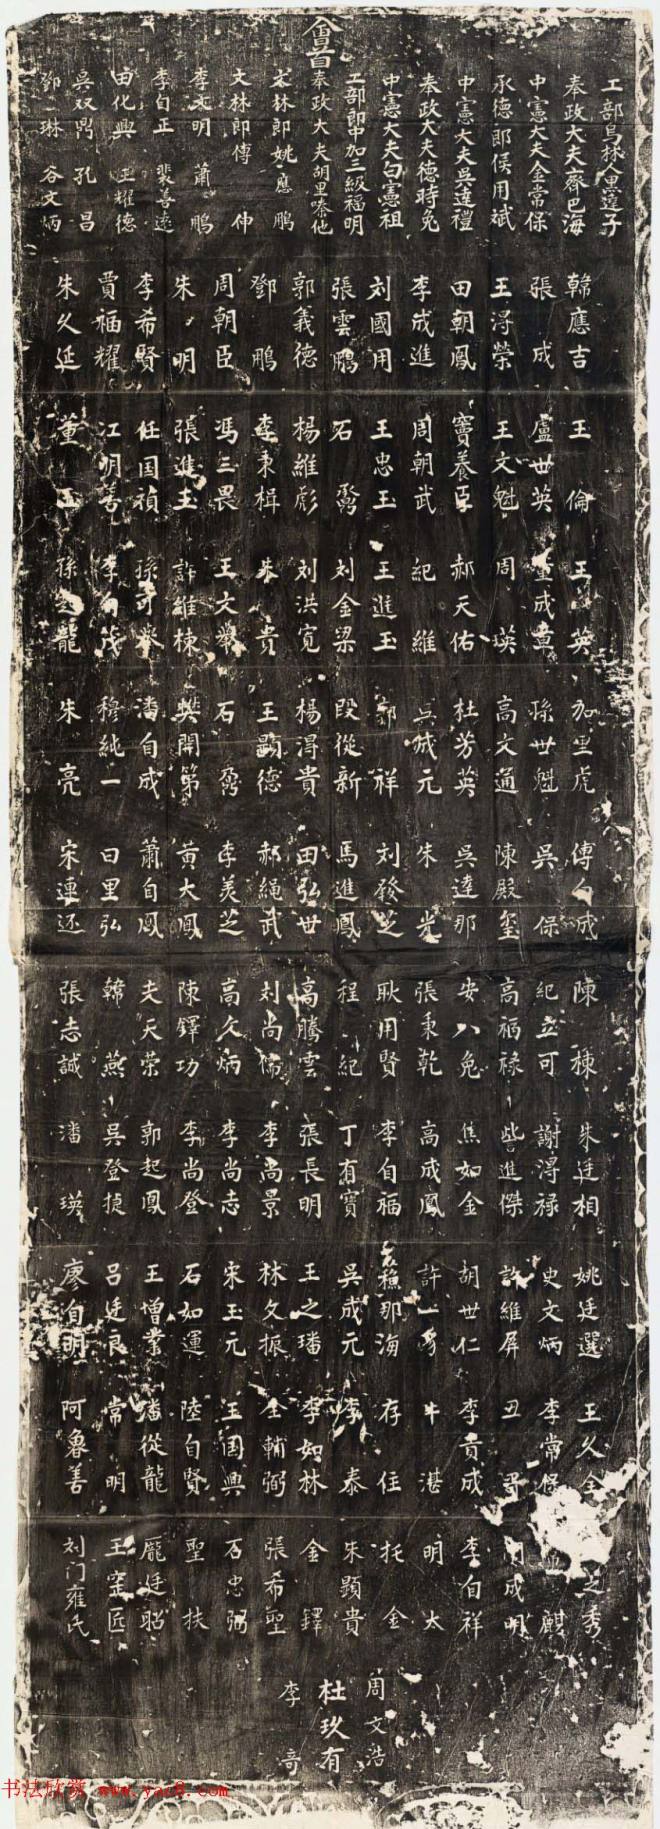 會首
工部烏林人黑達子
奉政大夫齊巴海
中憲大夫金常保
承德郎侯用斌
中憲大夫吳達禮
奉政大夫德時免
中憲大夫白憲祖
工部郎中加三級福明
奉政大夫胡里嗦他
文林郎姚應鵬
文林郎傅伸
李文明 蕭鵬
李自正 裴喜遠
田化興 王耀德
吳双鼎 孔昌
鄧琳 谷文炳
韓應吉 張成 王淂榮 田朝鳳 李成進 刘國用 張雲鵬 郭義德 鄧鵬 周朝臣 朱明 李希賢 賈福耀 朱久延
王倫 盧世英 王文魁 竇養臣 周朝武 王忠玉 石奮 楊維彪 李秉楫 馮三畏 張進玉 任国禎 江明善 董玉
王英 成 周瑛 郝天佑 紀維 王進玉 刘金梁 刘洪寬 朱貴 王文舉 許維棟 孫可舉 李茂 孫龍
加里虎 孫世魁 高文通 杜芳英 吳城元 郭祥 段從新 楊淂貴 王顕德 石奮 樊開第 潘自成 穆純一 朱亮
傅成 吳保 陳殿璽 吳達那 朱光 刘發芝 馬進鳳 田弘世 郝繩武 李美芝 黃大鳳 蕭自鳳 曰里弘 宋連还
陳棟 紀立可 高福禄 安八免 張秉乾 耿用賢 程紀 高騰雲 刘尚儒 高久炳 陳鐸功 夫天荣 韓燕 張志誠
朱廷相 謝淂禄 訾進傑 焦如金 高成鳳 李自福 丁有寶 張長明 李尚景 李尚志 李尚登 郭起鳳 吳登捷 潘瑛
姚廷選 史文炳 許維屏 胡世仁 許 穆那海 吳成元 王之璠 林文振 宋玉元 石如運 王增業 呂廷良 廖自明
王久全 李常保 丑哥 李貢成 牛湛 存住 李泰 李如林 金輔弼 王国興 陸自賢 潘從龍 常明 阿魯善
之秀 麒 成明 李自祥 明太 托金 朱顕貴 金鐸 張希聖 石忠弼 聖扶 龐廷昭 王窑匠 刘门雍氏
周文浩
杜玖有
李奇
书法欣赏 www.yac8.com